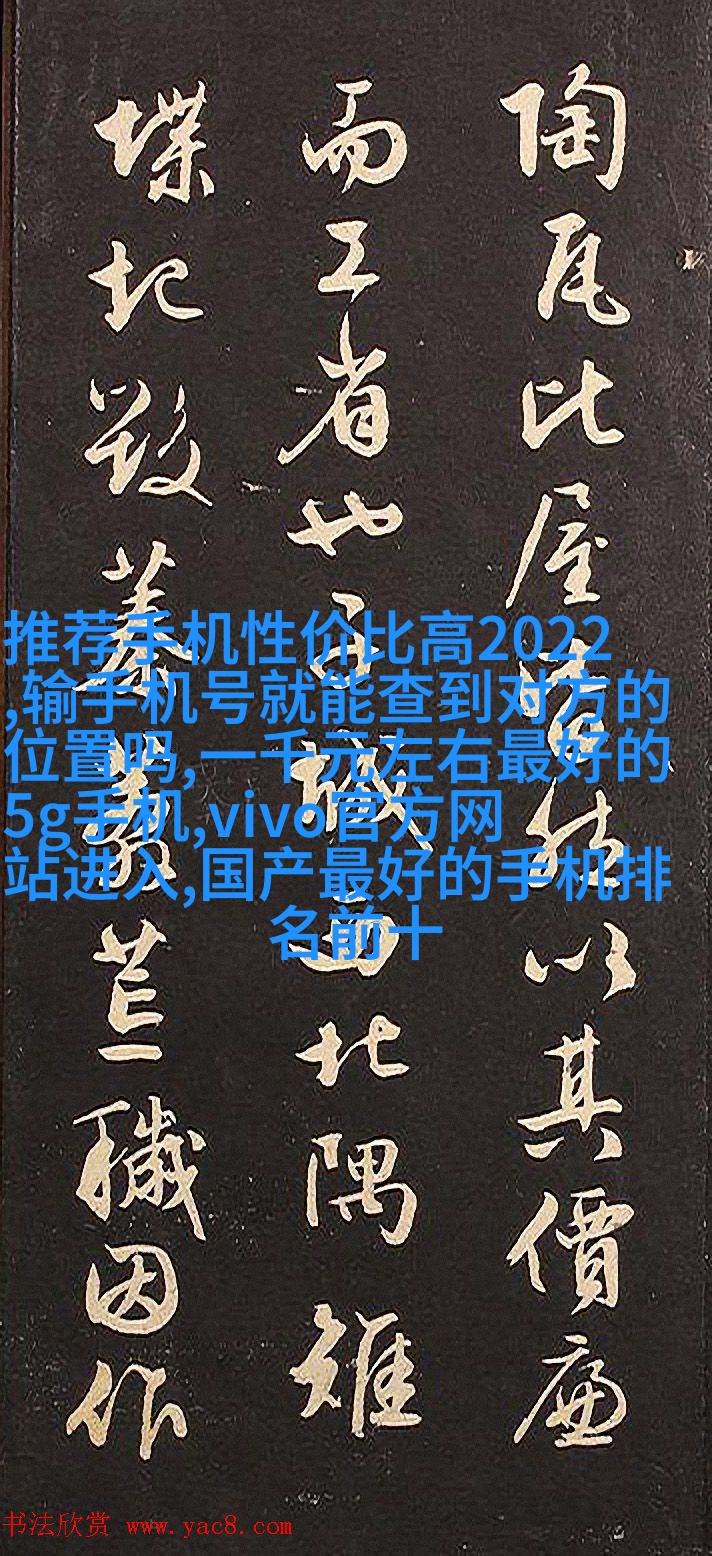 陶瓦比屋皆然以其價廉
而工省也子城西北隅雉
堞圮毀蓁莽荒穢因作
推荐手机性价比高2022
,输手机号就能查到对方的
位置吗,一千元左右最好的
5g手机,vivo官方网
站进入,国产最好的手机排
名前十
书法欣赏 www.yac8.com